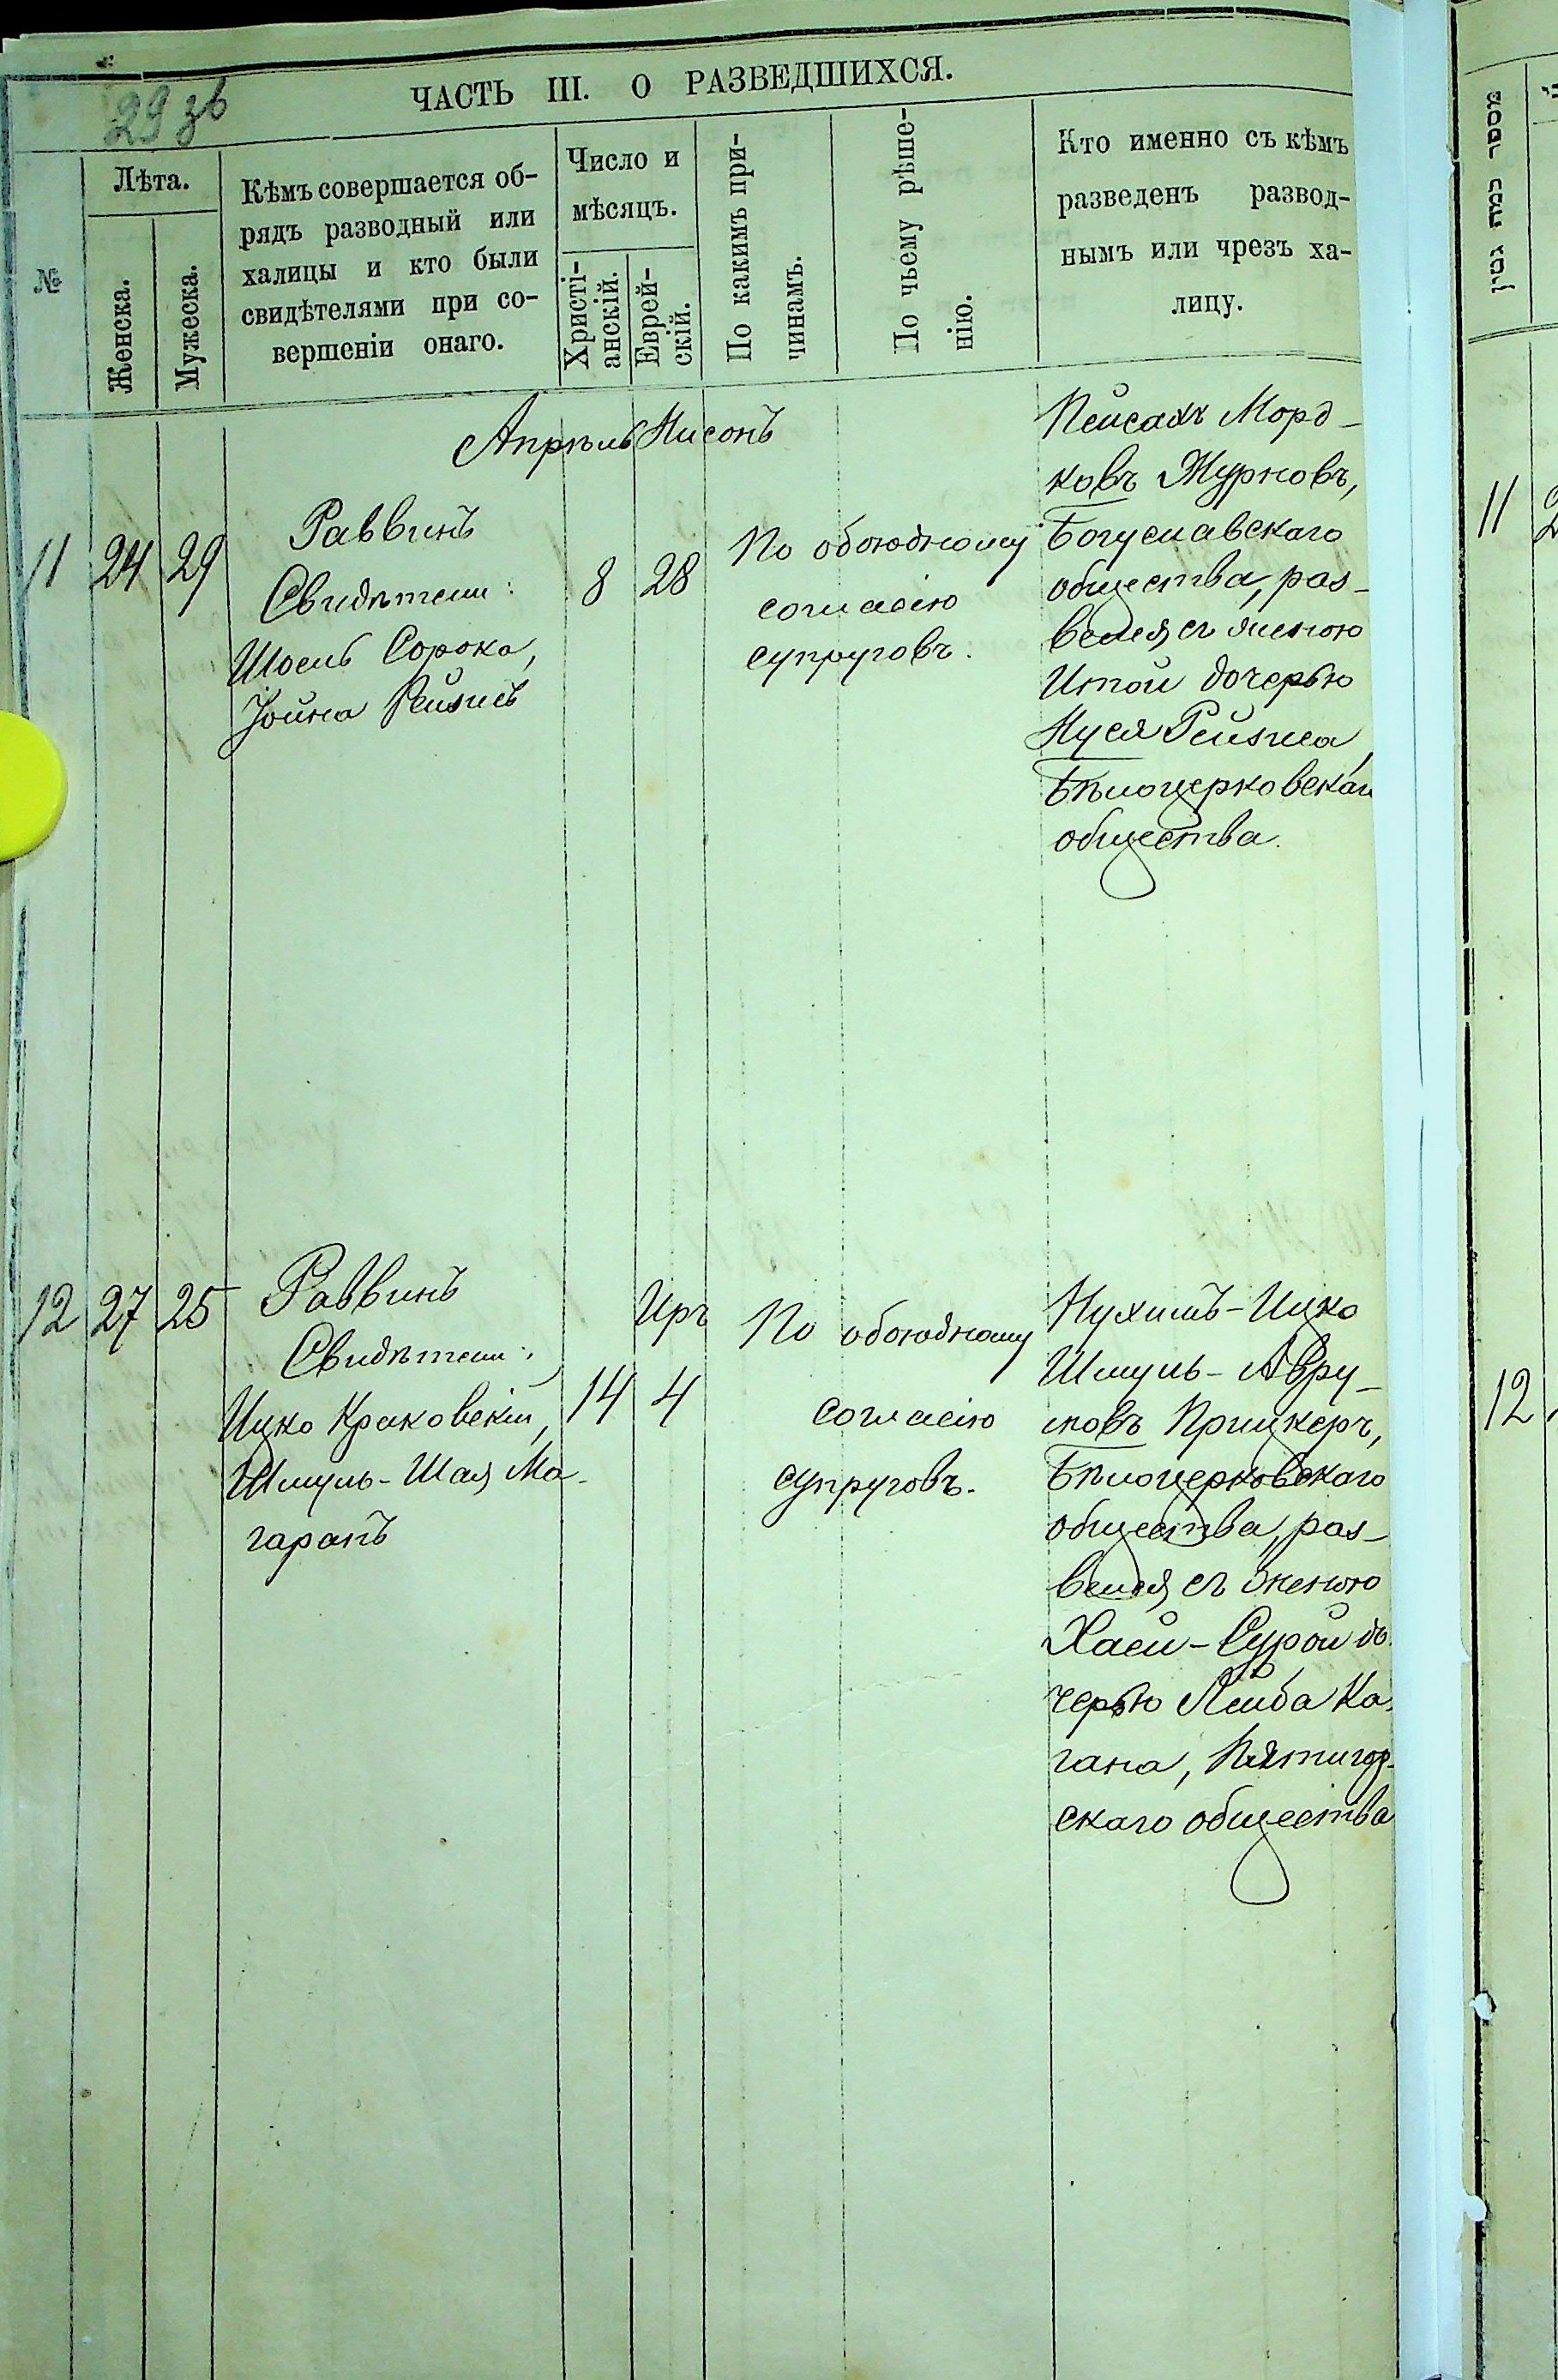 29 зв
ЧАСТЬ III. О РАЗВЕДШИХСЯ.
№
Лѣта.
Женска.
Мужеска.
Кѣмъ совершается об-
рядъ разводный или
халицы и кто были
свидѣтелями при со-
вершеніи онаго.
Число и
мѣсяцъ.
Христі-
анскій.
Еврей-
скій.
По какимъ при-
чинамъ.
По чьему рѣше-
нію.
Кто именно съ кѣмъ
разведенъ развод-
нымъ или чрезъ ха-
лицу.
Апрѣль Нисонъ
11 24 29
Раввинъ
Свидѣтели:
Шоель Сорока,
Іойна Рейзисъ
8 28
По обоюдному
согласію
супруговъ.
Пейсахъ Морд-
ковъ Журковъ,
Богуславскаго
общества, раз-
велся съ женою
Итой дочерью
Нуся Рейзиса
Бѣлоцерковскаго
общества.
12 27 25
Раввинъ
Свидѣтели:
Ицко Краковскій,
Шмуль-Шая Ма-
гарапъ
14
Иръ
4
По обоюдному
согласію
супруговъ.
Нухимъ-Ицко
Шмуль-Авру-
мовъ Прицкеръ,
Бѣлоцерковскаго
общества, раз-
велся съ женою
Хаей-Сурой до-
черью Лейба Ка-
гана, Пятигор-
скаго общества
מספר כמה גטין
11
12